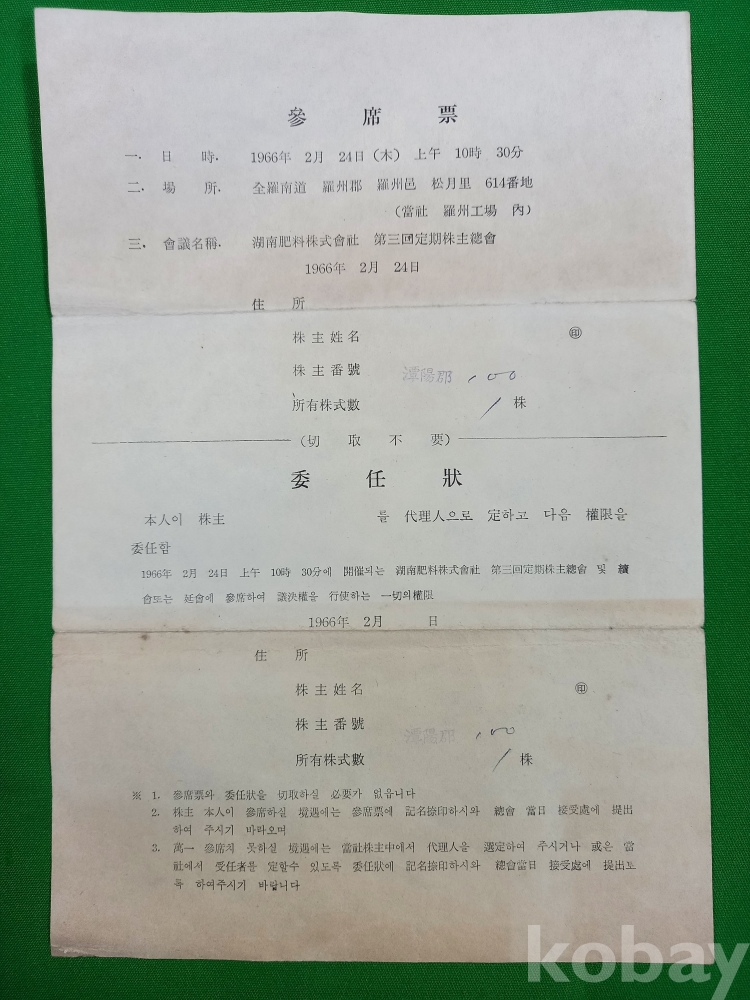 參席票
一. 日時. 1966年 2月 24日(木) 上午 10時 30分
二. 場所. 全羅南道 羅州郡 羅州邑 松月里 614番地
(當社 羅州工場 內)
三. 會議名稱. 湖南肥料株式會社 第三回定期株主總會
1966年 2月 24日
住所
株主姓名 ㊞
株主番號 潭陽郡
所有株式數 1株
(切取不要)
委任狀
本人이 株主 를 代理人으로 定하고 다음 權限을
委任함
1966年 2月 24日 上午 10時 30分에 開催되는 湖南肥料株式會社 第三回定期株主總會 및 續
會또는 延會에 參席하여 議決權을 行使하는 一切의權限
1966年 2月 日
住所
株主姓名 ㊞
株主番號 潭陽郡
所有株式數 1株
※ 1. 參席票와 委任狀을 切取하실 必要가 없읍니다
2. 株主 本人이 參席하실 境遇에는 參席票에 記名捺印하시와 總會 當日 接受處에 提出
하여 주시기 바라오며
3. 萬一 參席치 못하실 境遇에는 當社株主中에서 代理人을 選定하여 주시거나 或은 當
社에서 受任者를 定할수 있도록 委任狀에 記名捺印하시와 總會當日 接受處에 提出토
록 하여주시기 바랍니다
kobay